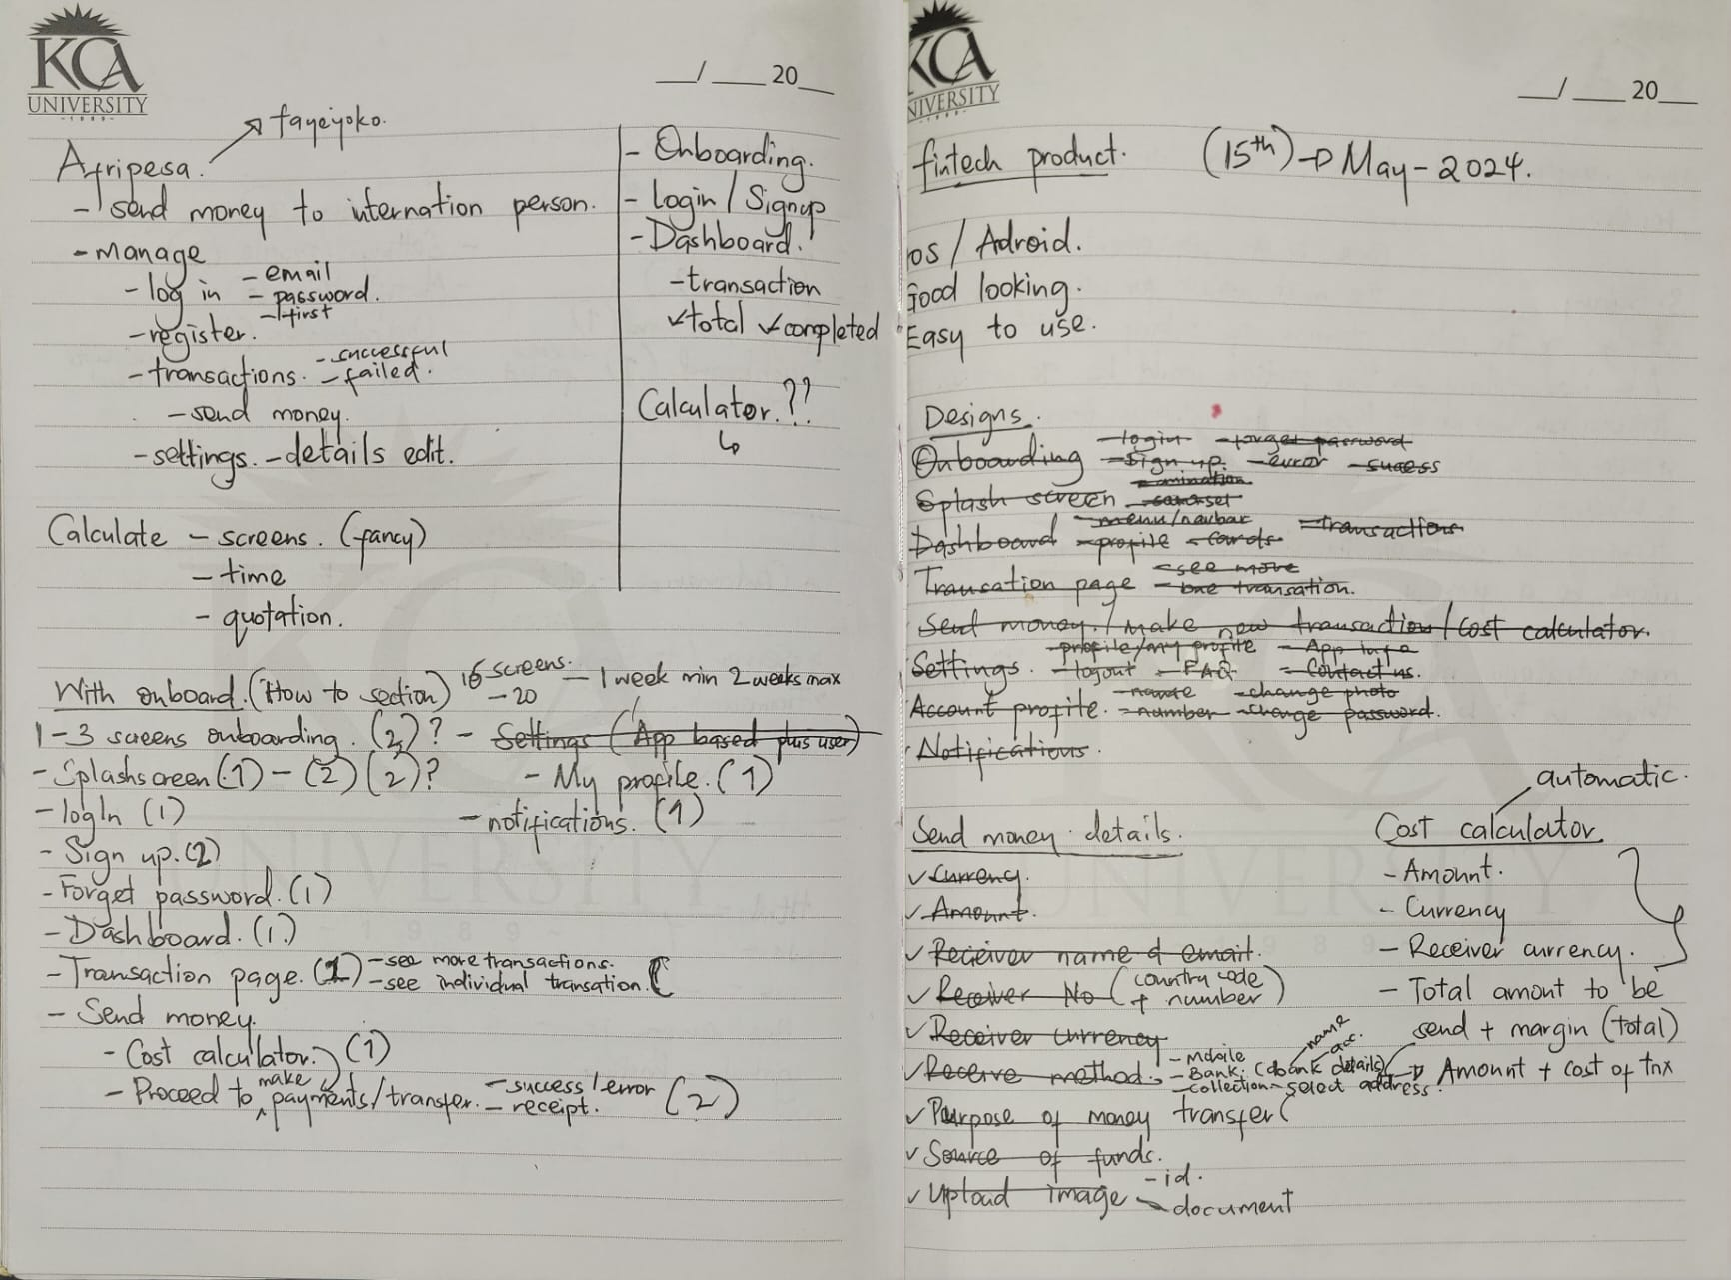 KCA
UNIVERSITY
-1989-
__/ ___ 20__
tayeyoko.
Afripesa.
- send money to internation person.
- manage
- log in - email
- password.
- first
- register.
- transactions. - successful
- failed.
- send money.
- settings. - details edit.
Calculate - screens. (fancy)
- time
- quotation.
- Onboarding.
- Login / Signup
- Dashboard.
- transaction
✓ total ✓ completed
Calculator.??
With onboard. (How to section) 16 screens. - 20 - 1 week min 2 weeks max
1-3 screens onboarding. (2)? - Settings (App based plus user)
- Splashscreen (1) - (2) (2)? - My profile. (1)
- logIn (1) - notifications. (1)
- Sign up. (2)
- Forget password. (1)
- Dashboard. (1)
- Transaction page. (1) - see more transactions.
- see individual transation.
- Send money.
- Cost calculator. (1)
- Proceed to make payments/transfer. - success/error (2)
- receipt.
KCA
NIVERSITY
-1989-
__/ ___ 20__
fintech product. (15th) → May - 2024.
ios / Adroid.
Good looking.
Easy to use.
Designs.
Onboarding - login - forget password
- Sign up. - error - sucess
Splash screen
Dashboard - menu/navbar - transactions
- profile - cards
Transcation page - see more
- one transation.
Send money. / Make new transaction / cost calculator.
Settings. - profile/my profile - App info
- logout - FAQ - Contact us.
Account profile. - name - change photo
- number - change password.
Notifications.
Send money details.
✓ Currency.
✓ Amount.
✓ Receiver name & email.
✓ Receiver No (country code + number)
✓ Receiver currency
✓ Receive method. - Mobile
- Bank. (bank details) name acc.
- collection - select address.
✓ Purpose of money transfer
✓ Source of funds.
✓ Upload image - id.
- document
automatic.
Cost calculator
- Amount.
- Currency
- Receiver currency.
- Total amont to be
send + margin (total)
Amount + cost of tnx